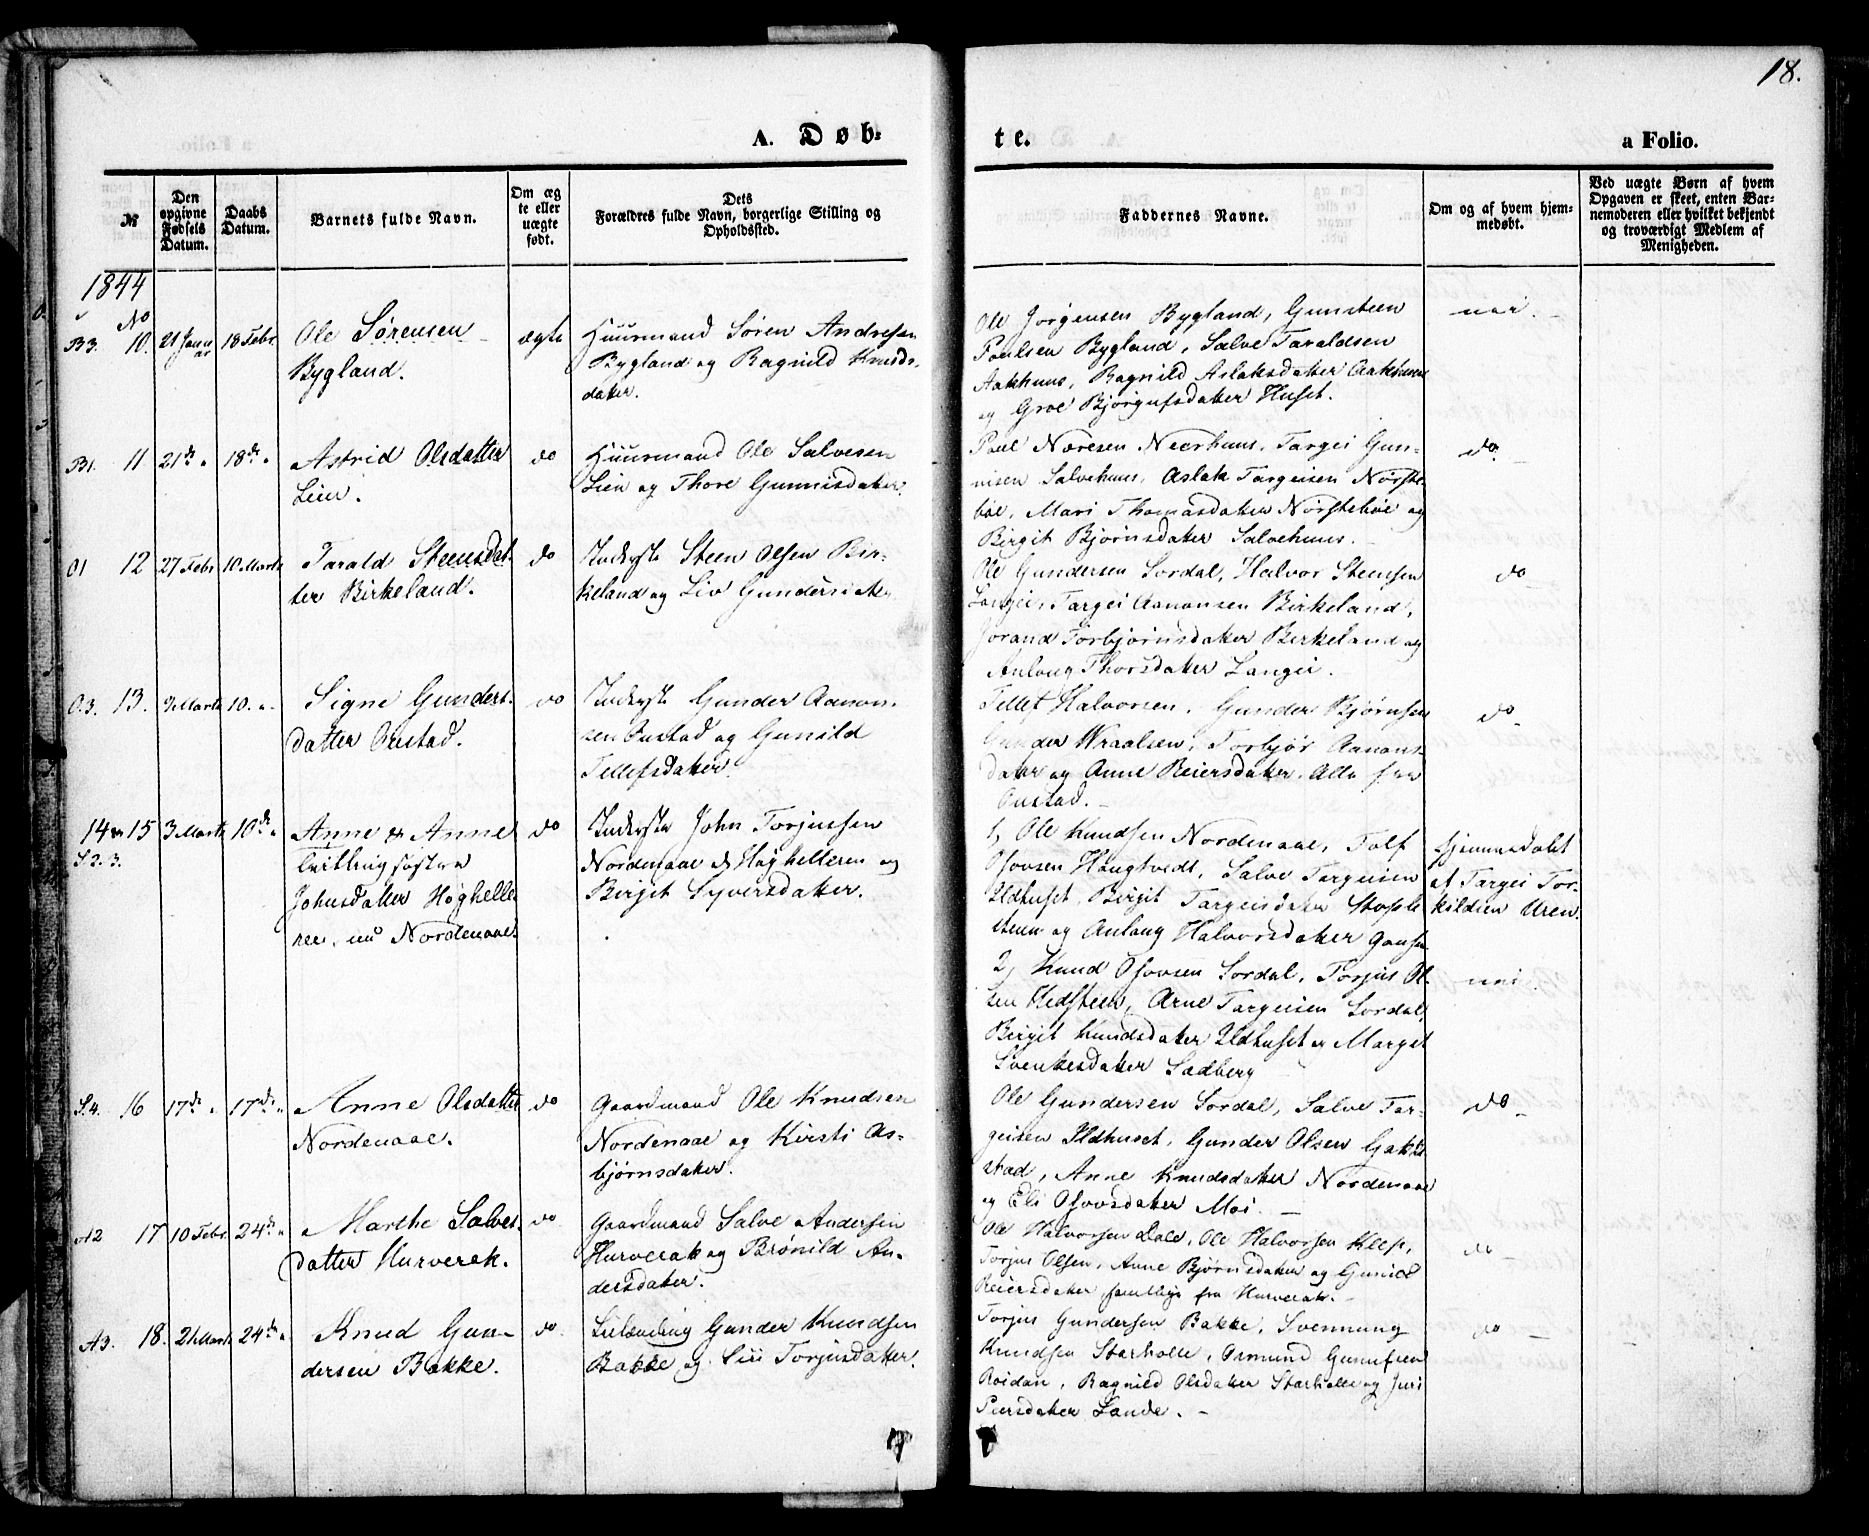 18.
A. Døb-
te.
a Folio.
№
Den opgivne Fødsels Datum.
Daabs Datum.
Barnets fulde Navn.
Om ægte eller uægte født.
Dets Forældres fulde Navn, borgerlige Stilling og Opholdssted.
Faddernes Navne.
Om og af hvem hjemmedøbt.
Ved uægte Børn af hvem Opgaven er skeet, enten Barnemoderen eller hvilket bekjendt og troværdigt Medlem af Menigheden.
1844
No
B3. 10. 21 Januar 18 Febr. Ole Sørensen ægte Huurmand Søren Andresen
Bygland. Bygland og Ragnild Knuds-
datter.
Ole Jørgensen Bygland, Gunsteen
Poulsen Bygland, Salve Taraldsen
Aakhuus, Ragnild Aslaksdatter Aakhuus
og Groe Bjørgufsdatter Huset.
B1. 11 21de " 18de " Astrid Olsdatter do Huurmand Ole Salvesen
Lien. Lien og Thore Gunnisdatter.
Poul Noresen Neerhuus, Targei Gun-
nisen Salvehuus, Aslak Targeisen Nørste-
bøe, Mari Thomasdatter Nørstebøe og
Birgit Bjørnsdatter Salvehuus.
do
O1 12 27 Febr 10 Marts Tarald Steensdat- do Inderste Steen Olsen Bir-
ter Birkeland. keland og Liv Gundersdatter
Ole Gundersen Sordal, Halvor Steensen
Langei, Targei Aanonsen Birkeland,
Jorand Torbjørnsdatter Birkeland og
Anlaug Thorsdatter Langei.
do
O.3. 13. 3 Marts 10. " Signe Gunders- do Inderste Gunder Aanon-
datter Oustad. sen Oustad og Gunild
Tellefsdatter.
Tellef Halvorsen, Gunder Bjørnsen
Gunder Wraalsen, Torbjør Aanons-
datter og Anne Reiersdatter. Alle fra
Oustad.
do
14 & 15 3 Marts 10de " Anne & Anne do Inderste John Torjussen
S.2.3. tvillingsøstre Nordenaae & Høghelleren og
Johnsdatter Høghelle- Birgit Syversdatter.
ren, nu Nordenaae.
1, Ole Knudsen Nordenaae, Tolf
Osovsen Haugtvedt, Salve Targeisen
Ildhuset, Birgit Targeisdatter
steen og Anlaug Halvorsdatter
Hjemmedøbt
af Targei Tor-
kildsen Uren.
2, Knud Osovsen Sordal, Torjus Ol-
sen Kedsteen, Arne Targeisen Sordal,
Birgit Knudsdatter Ildhuset og Margit
Svenkesdatter Sædberg
nei.
S.4. 16 17de " 17de " Anne Olsdatter do Gaardmand Ole Knudsen
Nordenaae. Nordenaae og Kirsti As-
bjørnsdatter.
Ole Gundersen Sordal, Salve Tar-
geisen Ildhuset, Gunder Olsen
stad, Anne Knudsdatter Nordenaae
og Eli Osovsdatter Moi.
do
A2 17 10 Febr. 24de " Marthe Salves- do Gaardmand Salve Andersen
datter Hurverak. Hurverak og Brønild An-
dersdatter.
Ole Halvorsen Dale, Ole Halvorsen Klep,
Torjus Olsen, Anne Bjørnsdatter og Gunild
Reiersdatter samtlige fra Hurverak.
do
A3. 18. 21 Marts 24de " Knud Gun- do. Selveiende Gunder Knudsen
dersen Bakke. Bakke og Siri Torjusdatter.
Torjus Gundersen Bakke, Svennung
Knudsen Starholte, Osmund Gunufsen
Roidan, Ragnild Olsdatter Starholte og Juri
Peersdatter Lande.
do